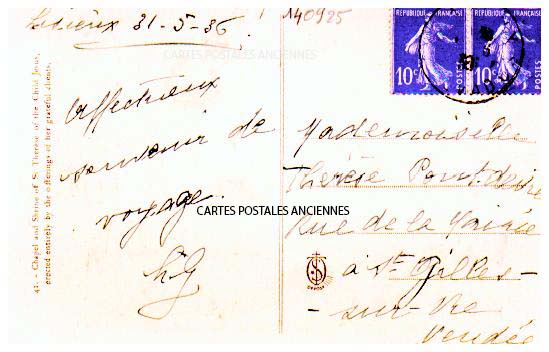 Lisieux 31-5-36.
140925
REPUBLIQUE FRANÇAISE
REPUBLIQUE FRANÇAISE
10c POSTES
10c POSTES
CARTES POSTALES ANCIENNES
42. - Chapel and Shrine of St Thérèse of the Child Jesus,
erected entirely by the offerings of her grateful clients.
Affectueux
souvenir de
voyage.
CARTES POSTALES ANCIENNES
Mademoiselle
Thérèse
Rue de la Mairie
à St Gilles-
- sur-Vie
Vendée